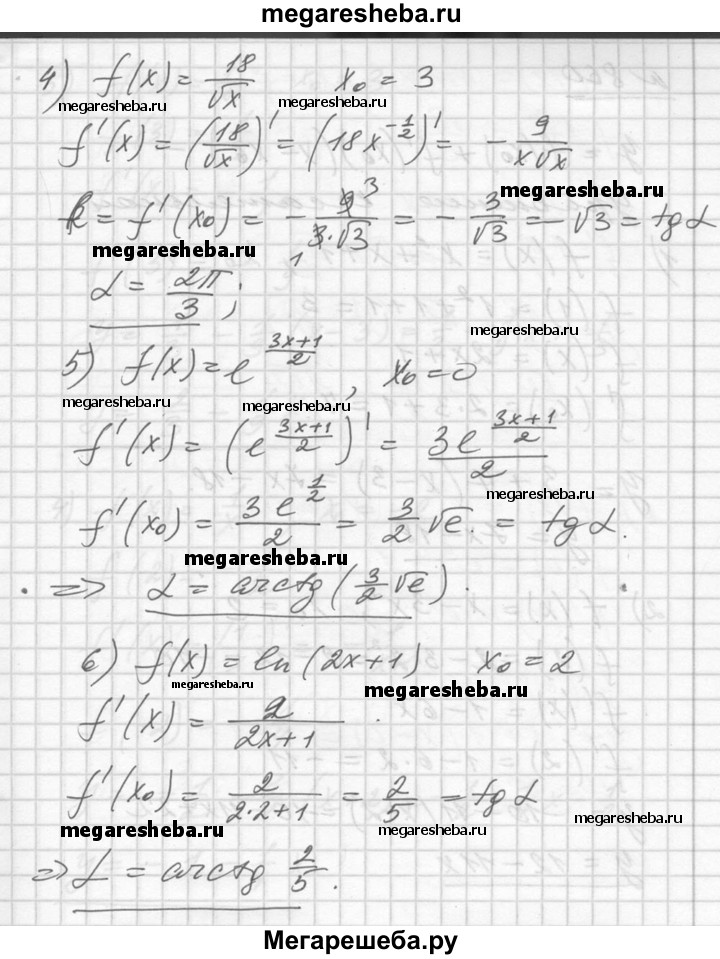 megaresheba.ru
4) f(x) = 18/√x    x₀ = 3
megaresheba.ru megaresheba.ru
f'(x) = (18/√x)' = (18x^(-1/2))' = - 9/(x√x)
megaresheba.ru
k = f'(x₀) = - 9/(3·√3) = - 3/√3 = - √3 = tg α
3
1
megaresheba.ru
α = 2π/3 ;
megaresheba.ru
5) f(x) = e^((3x+1)/2) , x₀ = 0
megaresheba.ru megaresheba.ru
f'(x) = (e^((3x+1)/2))' = 3e^((3x+1)/2)/2
megaresheba.ru
f'(x₀) = 3e^(1/2)/2 = 3/2 √e. = tg α.
megaresheba.ru
=> α = arctg (3/2 √e) .
6) f(x) = ln (2x+1)    x₀ = 2
megaresheba.ru megaresheba.ru
f'(x) = 2/(2x+1) .
f'(x₀) = 2/(2·2+1) = 2/5 = tg α
megaresheba.ru megaresheba.ru megaresheba.ru
=> α = arctg 2/5 .
Мегарешеба.ру